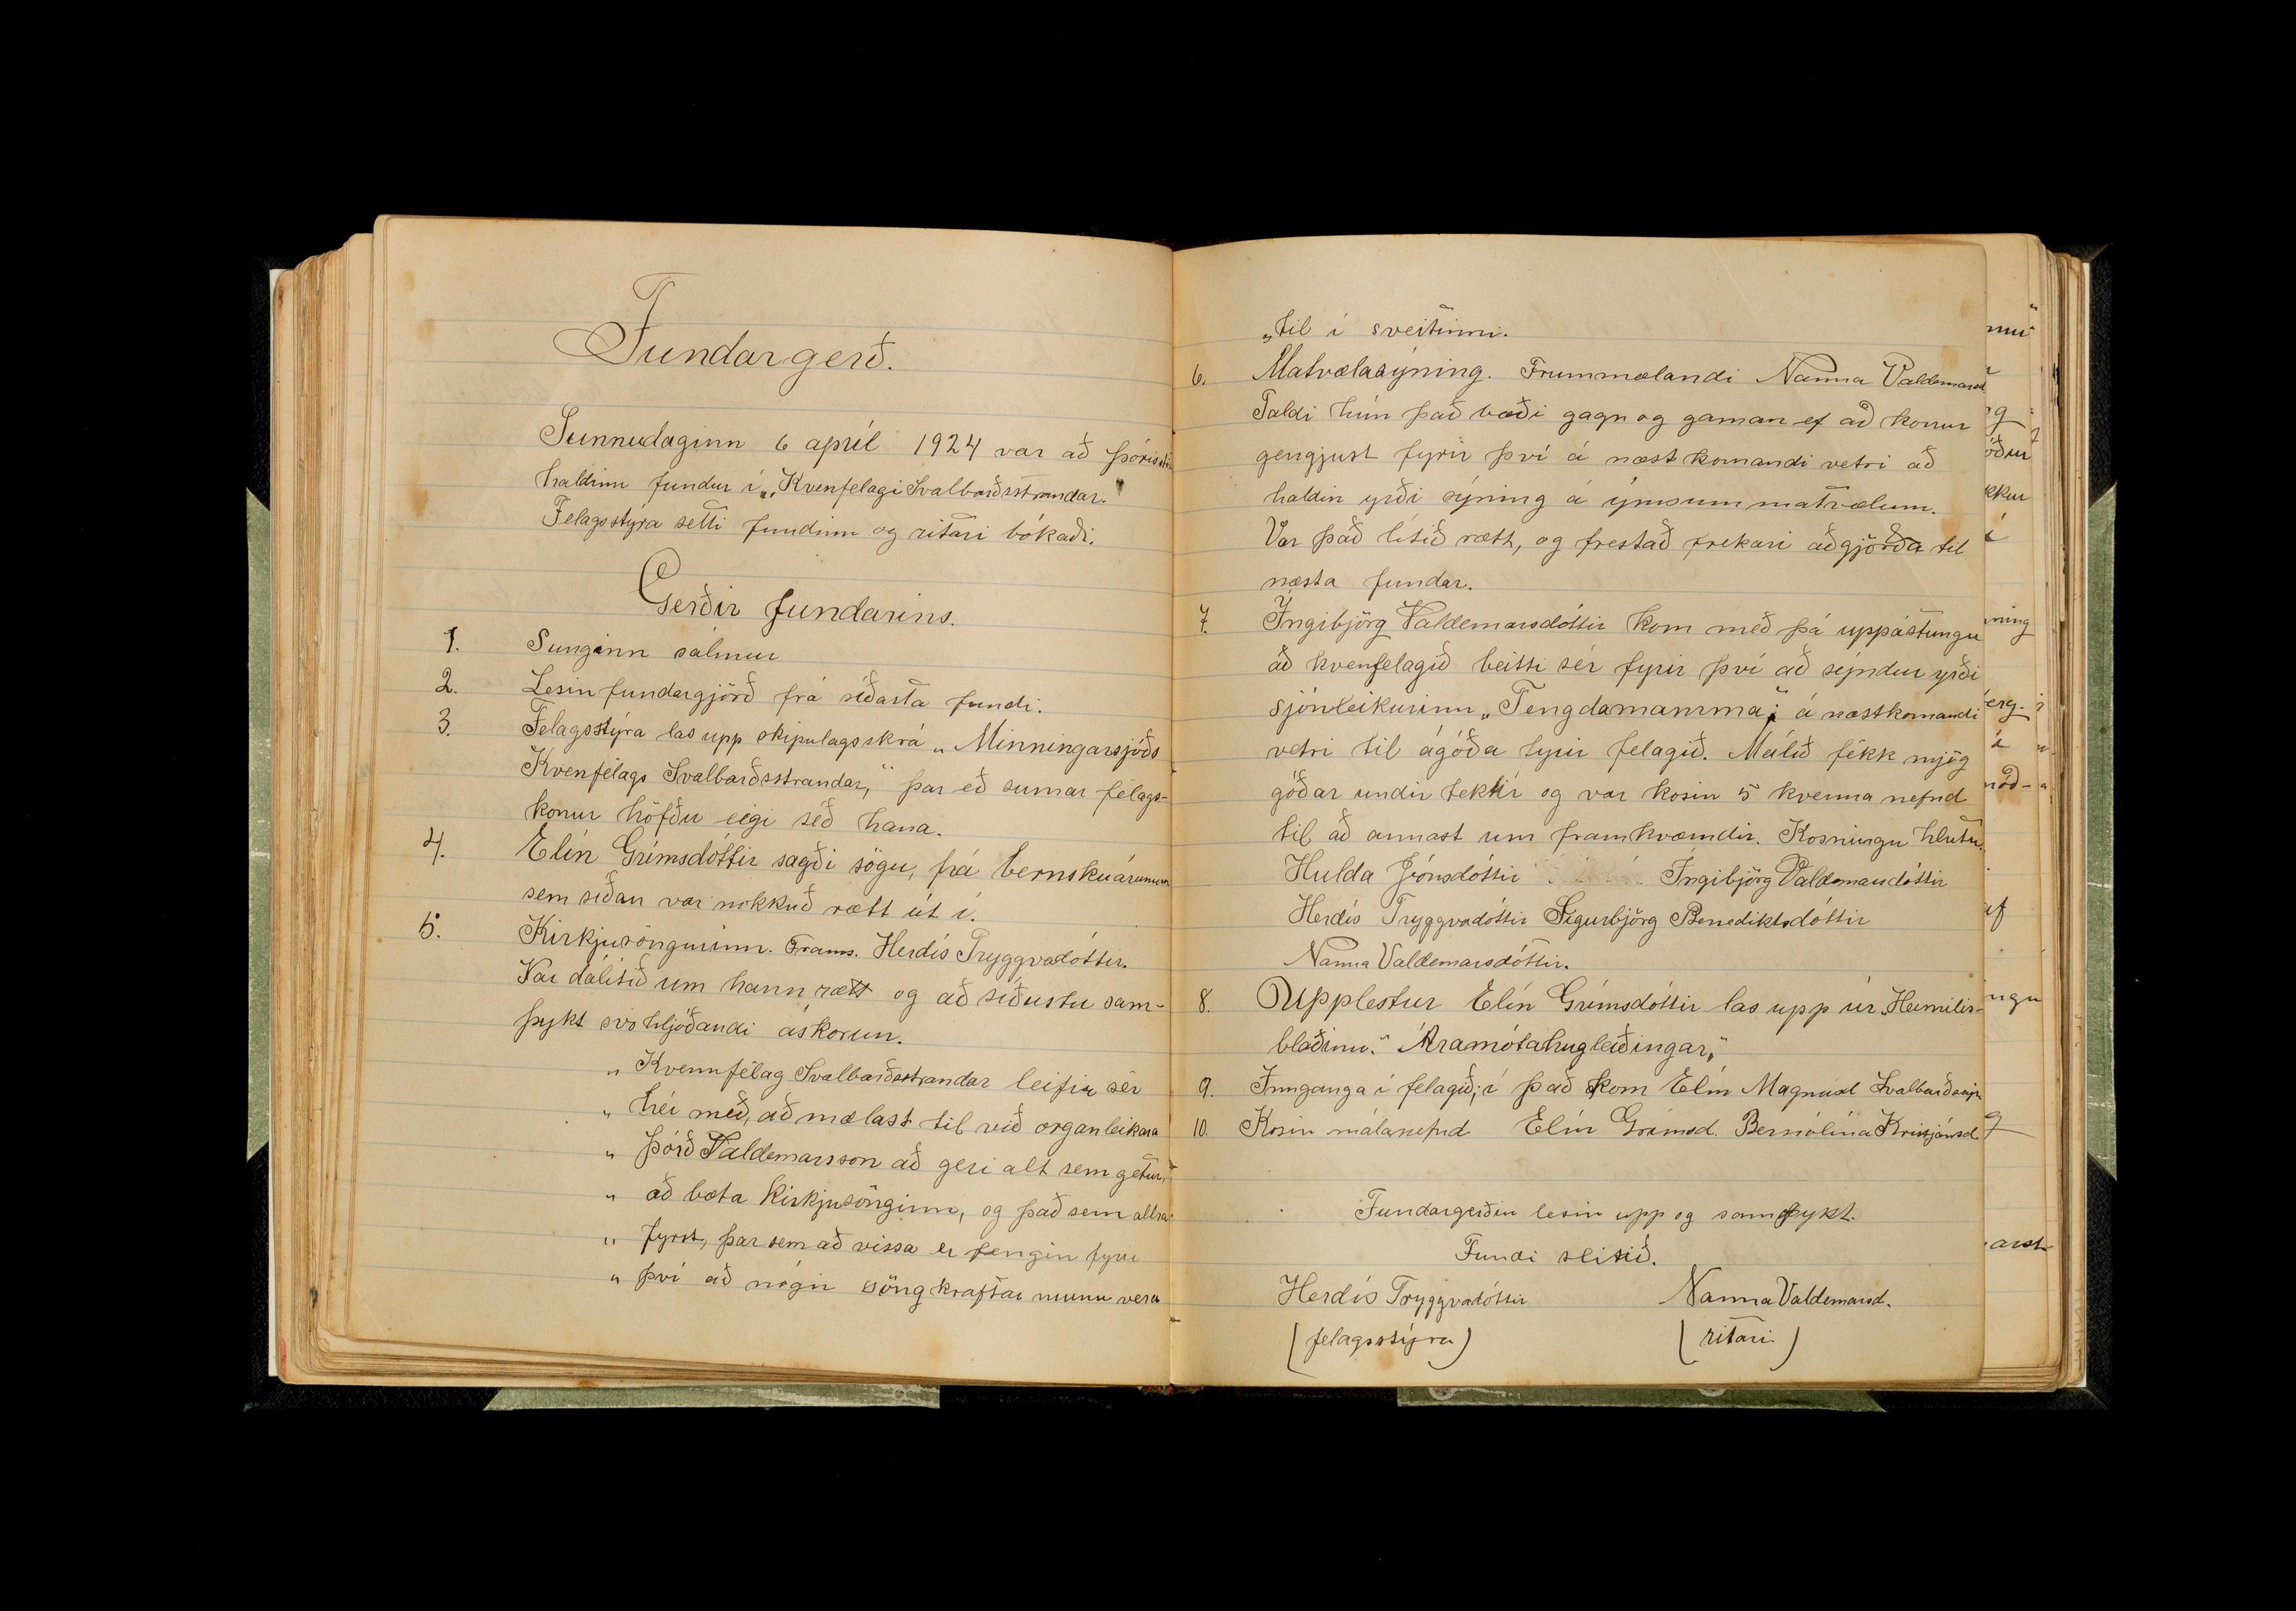 Fundargerð.
Sunnudaginn 6 apríl 1924 var að Þórisst.
haldinn fundur í „Kvenfelagi Svalbarðsstrandar.“
Felagsstýra setti fundinn og ritari bókaði.
Gerðir fundarins.
1. Sunginn sálmur
2. Lesin fundargjörð frá síðasta fundi.
3. Felagsstýra las upp skipulagsskrá „Minningarsjóðs
Kvenfélags Svalbarðsstrandar,“ þar eð sumar félags-
konur höfðu eigi séð hana.
4. Elín Grímsdóttir sagði sögu, frá bernskuárunum
sem síðan var nokkuð rætt út í.
5. Kirkjusöngurinn. Frams. Herdís Tryggvadóttir.
Var dálítið um hann rætt og að síðustu sam-
þykt svohljóðandi áskorun.
„ Kvennfélag Svalbarðsstrandar leifir sér
„ hér með, að mælast til við organleikara
„ Þórð Valdemarsson að geri alt sem getur,
„ að bæta kirkjusönginn, og það sem allra
„ fyrst, þar sem að vissa er fengin fyrir
„ því að nógir söngkraftar munu vera
„til í sveitinni.
6. Matvælasýning. Frummælandi Nanna Valdemarsd
Taldi hún það bæði gagn og gaman ef að konur
gengjust fyrir því á næstkomandi vetri að
haldin yrði sýning á ýmsum matvælum.
Var það lítið rætt, og frestað frekari aðgjörða til
næsta fundar.
7. Ingibjörg Valdemarsdóttir kom með þá uppástungu
að kvenfelagið beitti sér fyrir því að sýndur yrði
sjónleikurinn „Tengdamamma“ á næstkomandi
vetri til ágóða fyrir felagið. Málið fékk mjög
góðar undir tektir og var kosin 5 kvenna nefnd
til að annast um framkvæmdir. Kosningu hlutu.
Hulda Jónsdóttir Ingibjörg Valdemarsdóttir
Herdís Tryggvadóttir Sigurbjörg Benediktsdóttir
Nanna Valdemarsdóttir.
8. Upplestur Elín Grímsdóttir las upp úr „Heimilis-
blaðinu.“ Áramótahugleiðingar,“
9. Innganga í felagið; í það kom Elín Magnusd Svalbarðseyri
10. Kosin málanefnd Elín Grímsd. Bernólína Kristjánsd.
Fundargerðin lesin upp og samþykt.
Fundi slitið.
Herdís Tryggvadóttir Nanna Valdemarsd.
(felagsstýra) (ritari)